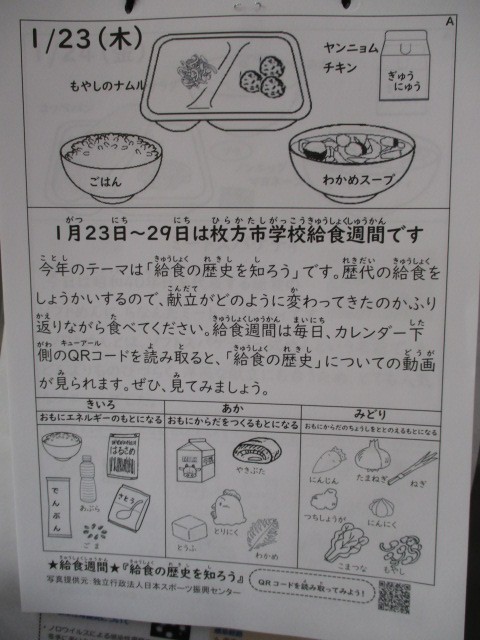 A
1/23(木)
もやしのナムル
ヤンニョム
チキン
ぎゅう
にゅう
ごはん
わかめスープ
1月23日～29日は枚方市学校給食週間です
今年のテーマは「給食の歴史を知ろう」です。歴代の給食を
しょうかいするので、献立がどのように変わってきたのかふり
返りながら食べてください。給食週間は毎日、カレンダー下
側のQRコードを読み取ると、「給食の歴史」についての動画
が見られます。ぜひ、見てみましょう。
きいろ
おもにエネルギーのもとになる
はるさめ
あぶら
でんぷん
さとう
ごま
あか
おもにからだをつくるもとになる
やきぶた
とうふ
とりにく
わかめ
みどり
おもにからだのちょうしをととのえるもとになる
にんじん
たまねぎ
ねぎ
つちしょうが
にんにく
こまつな
もやし
★給食週間★『給食の歴史を知ろう』
写真提供元 独立行政法人日本スポーツ振興センター
QRコードを読み取ってみよう!